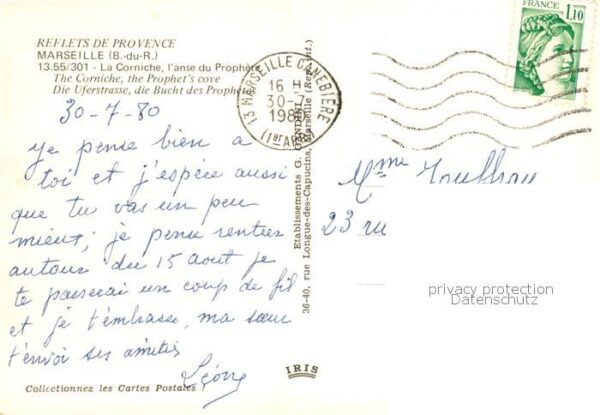 REFLETS DE PROVENCE
MARSEILLE (B.-du-R.)
13.55/301 - La Corniche, l'anse du Prophète
The Corniche, the Prophet's cove
Die Uferstrasse, die Bucht des Prophe
30-7-80
je pense bien à
toi et j'espère aussi
que tu vas un peu
mieux; je pense rentrer
autour du 15 août je
te passerai un coup de fil
et je t'embrasse, ma sœur
t'envoi ses amitiés
Collectionnez les Cartes Postales !
13 MARSEILLE CANEBIÈRE
16 H
30-7
1980
(1er ARR
Etablissements G.
36-40, rue Longue-des-Capucins, Marseille
IRIS
FRANCE
1,10
Mme
23 ru
privacy protection
Datenschutz